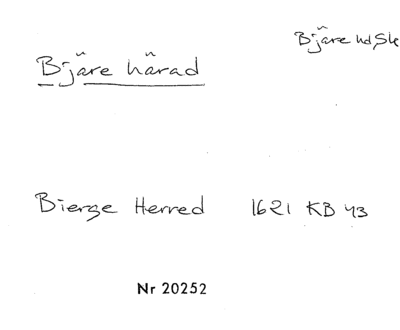 Bjäre hd, Sk
Bjäre härad
Bierge Herred 1621 KB 43
Nr 20252